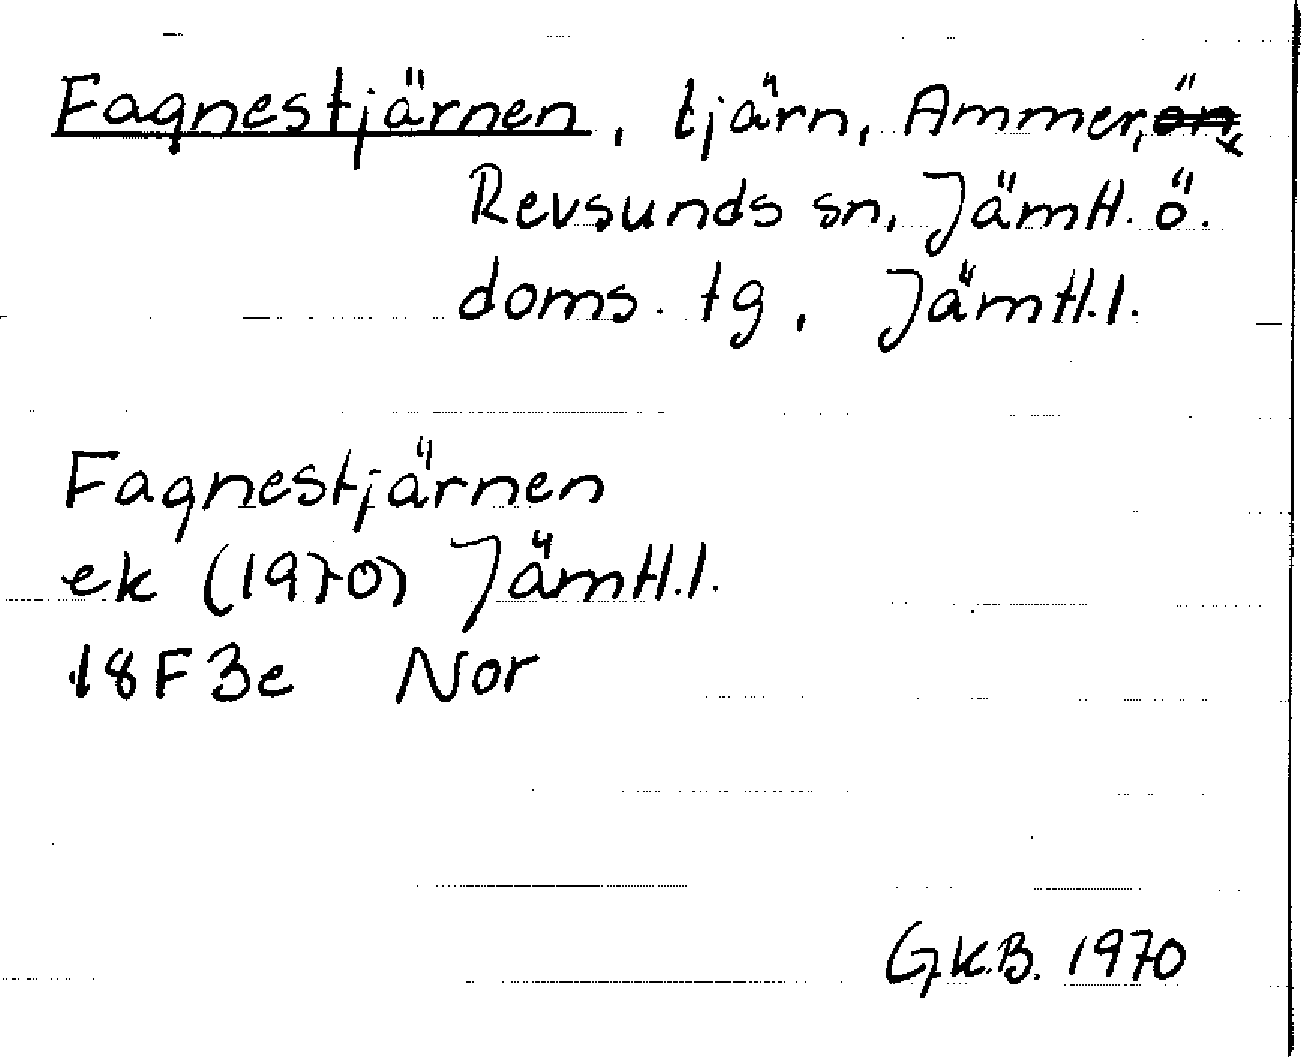 Fagnestjärnen, tjärn, Ammer,
Revsunds sn, Jämtl. ö.
doms. tg, Jämtl.l.
Fagnestjärnen
ek (1970) Jämtl.l.
18F3e Nor
G.K.B. 1970